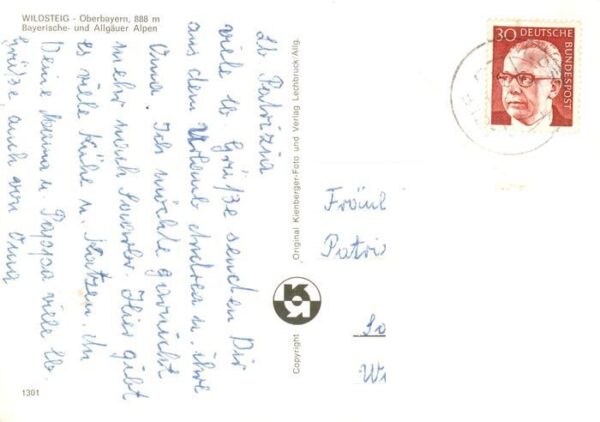 WILDSTEIG - Oberbayern, 888 m
Bayerische- und Allgäuer Alpen
lb Patrizia
viele lb Grüße senden Dir
aus dem Urlaub Andrea u. ihre
Oma. Ich möchte garnicht
mehr nach Hier gibt
es viele Kühe u. Katzen. An
Deine Mama u. Pappa viele lb.
Grüße auch von Oma
1301
Original Kienberger-Foto und Verlag Lechbruck/Allg.
Copyright
30 DEUTSCHE
BUNDESPOST
Fröul
Patri
So
Wi